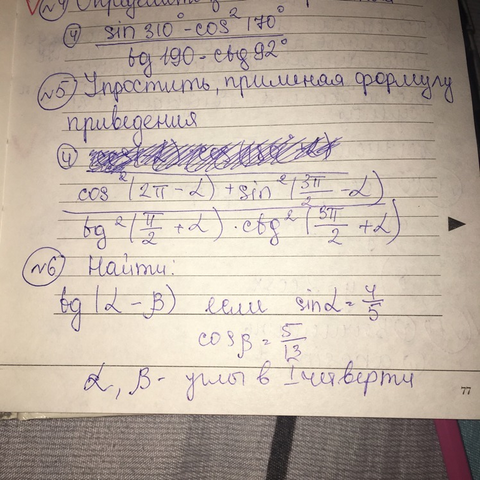 №4 Определить
4) sin 310° - cos² 170°
tg 190 - ctg 92°
№5 Упростить, применяя формулу
приведения
4)
cos²(2π - α) + sin²(3π/2 - α)
tg²(π/2 + α) · ctg²(3π/2 + α)
№6 Найти:
tg(α - β) если sinα = 4/5
cosβ = 5/13
α, β - углы в I четверти
77